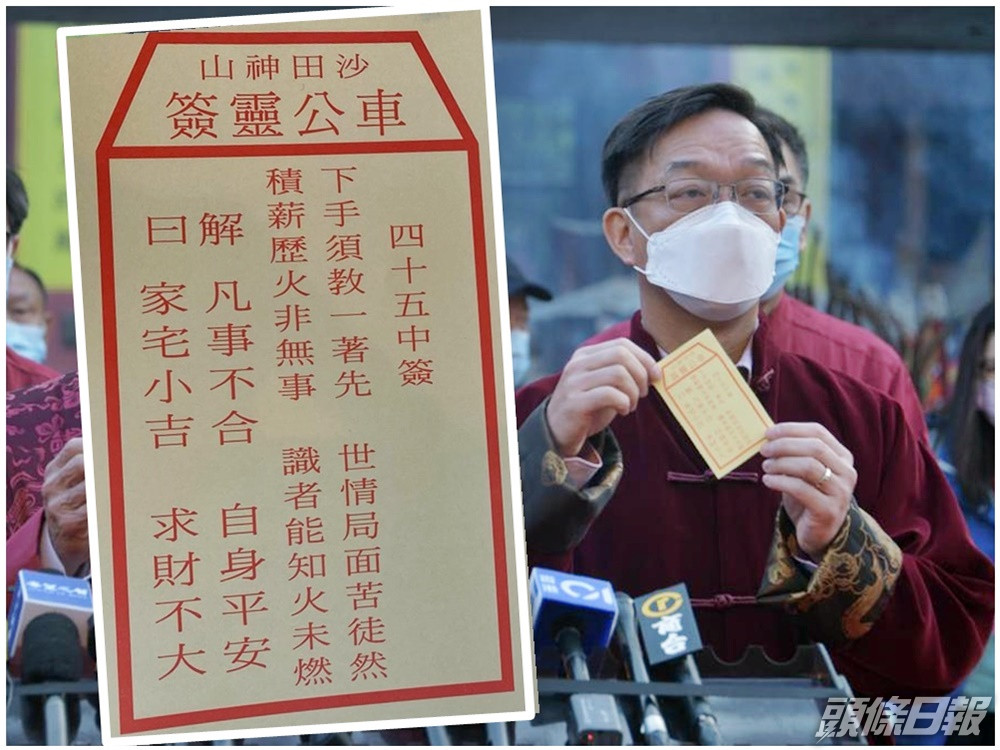 沙田神山
車公靈簽
四十五中簽
下手須教一著先 世情局面苦徒然
積薪歷火非無事 識者能知火未燃
解 凡事不合 自身平安
曰 家宅小吉 求財不大
商台
頭條日報